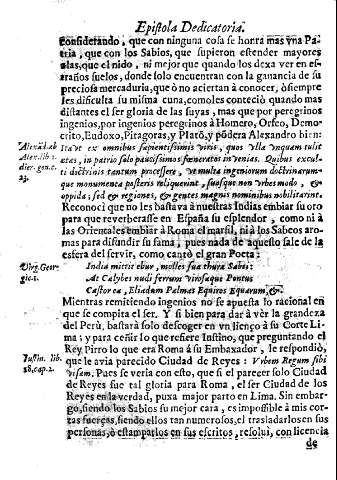 Epistola Dedicatoria.
Considerando, que con ninguna cosa se honrà mas vna Pa-
tria, que con los Sabios, que supieron estender mayores
alas, que el nido, ni mejor que quando los dexa ver en es-
traños suelos, donde solo encuentran con la ganancia de su
preciosa mercaduria, que ò no aciertan à conocer, ò siempre
les dificulta su misma cuna, comoles conteciò quando mas
distantes el ser gloria de las suyas, mas que por peregrinos
ingenios, por ingenios peregrinos à Homero, Orfeo, Demo-
crito, Eudoxo, Pitagoras, y Platõ, y pudera Alexandro bien:
Alex. ab
Alex. lib. 2.
dier. gen. c.
23.
Ita vt ex omnibus sapientissimis viris, quos vlla vnquam tulit
ætas, in patrio solo paucissimos fœneratos invenias. Quibus excul-
ti doctrinis tantum processere, vt multa ingeniorum doctrinarum-
que monumenta posteris reliquerint, suasque non vrbes modo, &
oppida; sed & regiones, & gentes magnis nominibus nobilitarint.
Reconoci que no les bastava à nuestras Indias embiar su oro
para que reverberasse en España su esplendor, como ni à
las Orientales embiar à Roma el marfil, ni à los Sabeos aro-
mas para difundir su fama, pues nada de aquesto sale de la
esfera del servir, como cantò el gran Poeta:
Virg. Geor-
gic. 1.
India mittit ebur, molles sua thura Sabæi:
At Calybes nudi ferrum virosaque Pontus
Castorea, Eliadum Palmas Epiros Equarum, &.
Mientras remitiendo ingenios no se apuesta lo racional en
que se compita el ser. Y si bien para dar à ver la grandeza
del Perù, bastarà solo descoger en vn liença à su Corte Li-
ma; y para ceñir lo que refiere Iustino, que preguntando el
Rey Pirro lo que era Roma à su Embaxador, le respondiò,
Iustin. lib.
18. cap. 2.
que le avia parecido Ciudad de Reyes: Vrbem Regum sibi
visam. Pues se veria con esto, que si el parecer solo Ciudad
de Reyes fue tal gloria para Roma, el ser Ciudad de los
Reyes en la verdad, puxa major parto en Lima. Sin embar-
go, siendo los Sabios su mejor cara, es impossible à mis cor-
tas fuerças, siendo ellos tan numerosos, el trasladarlos en sus
personas, ò estampatlos en sus escritos, resolui, con licencia
de